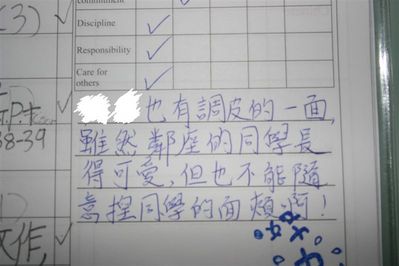 (3)
commitment
Discipline ✓
Responsibility ✓
Care for
others ✓
38-39
也有調皮的一面,
雖然鄰座的同學長
得可愛,但也不能隨
意捏同學的面頰啊!
文作,